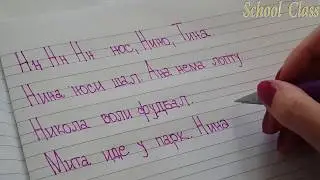 School Class
Нн Нн Нн нос, Нино, Тина.
Нина носи шал. Ана нема лопту.
Никола воли фудбал.
Мита иде у парк. Нина